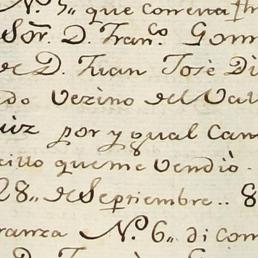 N.º 5,, que con esta
Sor. D. Franco. Gom
de D. Juan Josè Di
do Vezino del Val
uiz por ygual Can
cillo que me Vendiò.
28,, de Septiembre.. 8
ranza N.º 6,, di com